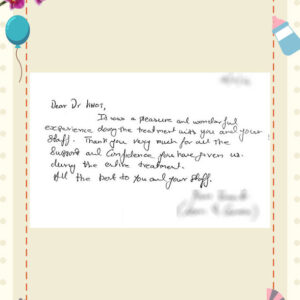 Dear Dr
It was a pleasure and wonderful
experience doing the treatment with you and your
staff. Thank you very much for all the
support and confidence you have given us
during the entire treatment.
All the best to you and your staff.